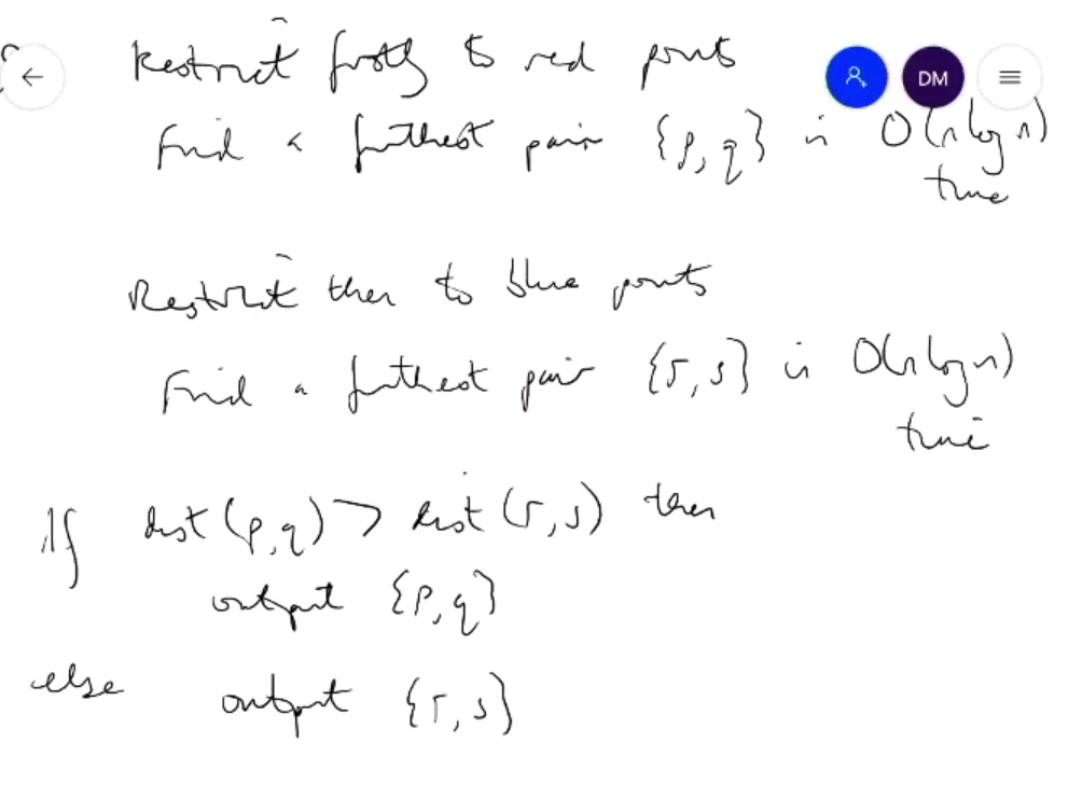 Restrict firstly to red points
DM
Find a furthest pair {p, q} in O(n log n)
time
Restrict then to blue points
Find a furthest pair {r, s} in O(n log n)
time
If dist(p, q) > dist(r, s) then
output {p, q}
else output {r, s}